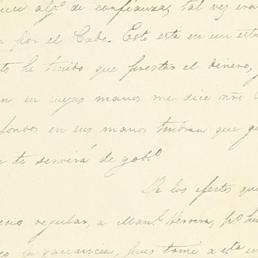 algo de confianza, tal vez era
por el Cabo. Esto está en un est
he tenido que prestar el dinero,
en cuyas manos me dice
fondos en sus manos tendran que
te servirá de gob.º
De los efectos que
regular, a Man.l Herrera, p.r
la ganancia, pues tomé a este